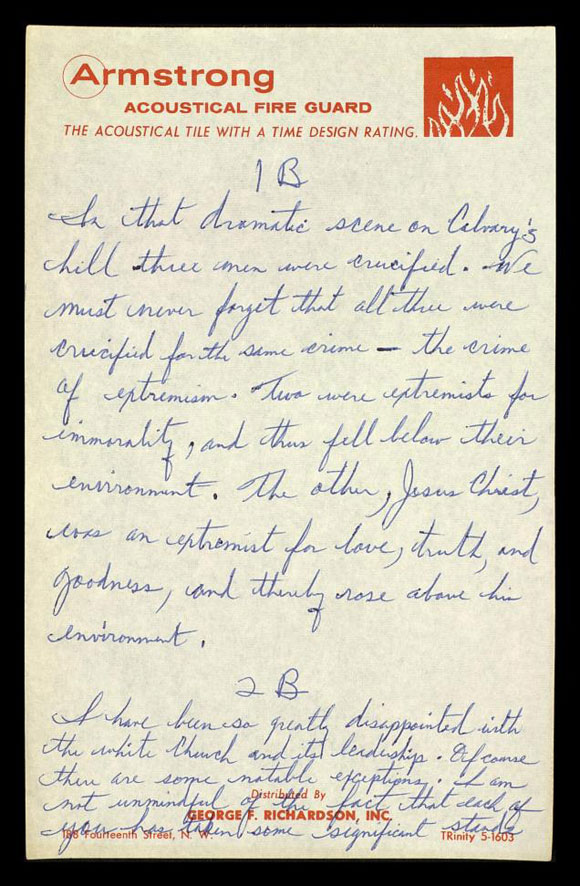 Armstrong
ACOUSTICAL FIRE GUARD
THE ACOUSTICAL TILE WITH A TIME DESIGN RATING.
1 B
In that dramatic scene on Calvary's
hill three men were crucified. We
must never forget that all three were
crucified for the same crime — the crime
of extremism. Two were extremists for
immorality, and thus fell below their
environment. The other, Jesus Christ,
was an extremist for love, truth, and
goodness, and thereby rose above his
environment.
2 B
I have been so greatly disappointed with
the white Church and its leadership. Of course
there are some notable exceptions. I am
Distributed By
not unmindful of the fact that each of
GEORGE F. RICHARDSON, INC.
you has taken some significant stands
Fourteenth Street, N. W. TRinity 5-1603